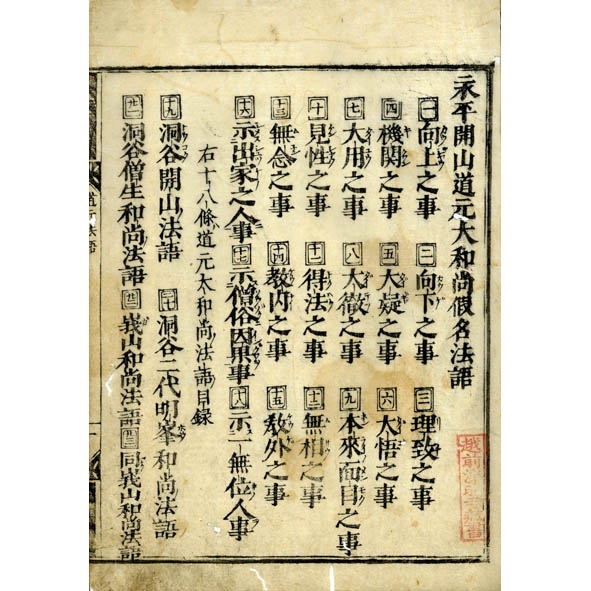 永平開山道元大和尚假名法語
一 向上之事 二 向下之事 三 理致之事
四 機関之事 五 大疑之事 六 大悟之事
七 大用之事 八 大徹之事 九 本來面目之事
十 見性之事 十一 得法之事 十二 無相之事
十三 無念之事 十四 教内之事 十五 教外之事
十六 示出家之人事 十七 示僧俗因果事 十八 示一無位人事
右十八條道元大和尚法語目録
十九 洞谷開山法語 二十 洞谷二代明峯和尚法語
廿一 洞谷僧生和尚法語 廿二 峩山和尚法語 廿三 同峩山和尚法語